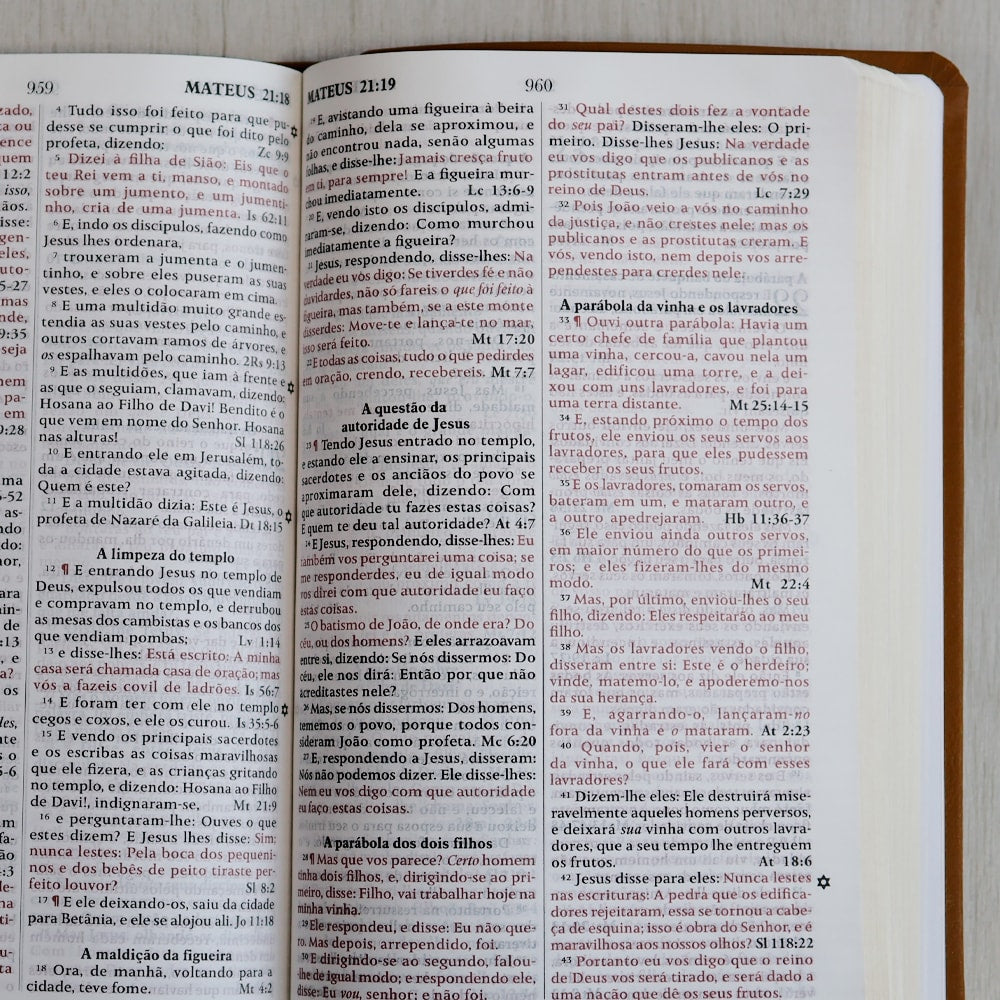 959
MATEUS 21:18
zado,
ta ou
ence
quem
12:2
isso,
ãos.
isse:
gen-
eles,
uto-
5-27
mas
nde,
9:35
seja
nem
pa-
em
9:28
ma
5-52
as-
ndo
do:
nor,
ara
ain-
de
:13
, e
a?
os
des,
nte
s o
5-6
m
fa-
ão
4:3
le-
na
ti-
u-
ta
4 Tudo isso foi feito para que pu-
desse se cumprir o que foi dito pelo
profeta, dizendo: Zc 9:9
5 Dizei à filha de Sião: Eis que o
teu Rei vem a ti, manso, e montado
sobre um jumento, e um jumenti-
nho, cria de uma jumenta. Is 62:11
6 E, indo os discípulos, fazendo como
Jesus lhes ordenara,
7 trouxeram a jumenta e o jumen-
tinho, e sobre eles puseram as suas
vestes, e eles o colocaram em cima.
8 E uma multidão muito grande es-
tendia as suas vestes pelo caminho, e
outros cortavam ramos de árvores, e
os espalhavam pelo caminho. 2Rs 9:13
9 E as multidões, que iam à frente e
as que o seguiam, clamavam, dizendo:
Hosana ao Filho de Davi! Bendito é o
que vem em nome do Senhor. Hosana
nas alturas! Sl 118:26
10 E entrando ele em Jerusalém, to-
da a cidade estava agitada, dizendo:
Quem é este?
11 E a multidão dizia: Este é Jesus, o
profeta de Nazaré da Galileia. Dt 18:15
A limpeza do templo
12 ¶ E entrando Jesus no templo de
Deus, expulsou todos os que vendiam
e compravam no templo, e derrubou
as mesas dos cambistas e os bancos dos
que vendiam pombas; Lv 1:14
13 e disse-lhes: Está escrito: A minha
casa será chamada casa de oração; mas
vós a fazeis covil de ladrões. Is 56:7
14 E foram ter com ele no templo
cegos e coxos, e ele os curou. Is 35:5-6
15 E vendo os principais sacerdotes
e os escribas as coisas maravilhosas
que ele fizera, e as crianças gritando
no templo, e dizendo: Hosana ao Filho
de Davi!, indignaram-se, Mt 21:9
16 e perguntaram-lhe: Ouves o que
estes dizem? E Jesus lhes disse: Sim;
nunca lestes: Pela boca dos pequeni-
nos e dos bebês de peito tiraste per-
feito louvor? Sl 8:2
17 ¶ E ele deixando-os, saiu da cidade
para Betânia, e ele se alojou ali. Jo 11:18
A maldição da figueira
18 Ora, de manhã, voltando para a
cidade, teve fome. Mt 4:2
MATEUS 21:19
960
19 E, avistando uma figueira à beira
do caminho, dela se aproximou, e
não encontrou nada, senão algumas
folhas, e disse-lhe: Jamais cresça fruto
em ti, para sempre! E a figueira mur-
chou imediatamente. Lc 13:6-9
20 E, vendo isto os discípulos, admi-
raram-se, dizendo: Como murchou
imediatamente a figueira?
21 Jesus, respondendo, disse-lhes: Na
verdade eu vos digo: Se tiverdes fé e não
duvidardes, não só fareis o que foi feito à
figueira, mas também, se a este monte
disserdes: Move-te e lança-te no mar,
isso será feito. Mt 17:20
22 E todas as coisas, tudo o que pedirdes
em oração, crendo, recebereis. Mt 7:7
A questão da
autoridade de Jesus
23 ¶ Tendo Jesus entrado no templo,
e estando ele a ensinar, os principais
sacerdotes e os anciãos do povo se
aproximaram dele, dizendo: Com
que autoridade tu fazes estas coisas?
E quem te deu tal autoridade? At 4:7
24 E Jesus, respondendo, disse-lhes: Eu
também vos perguntarei uma coisa; se
me responderdes, eu de igual modo
vos direi com que autoridade eu faço
estas coisas.
25 O batismo de João, de onde era? Do
céu, ou dos homens? E eles arrazoavam
entre si, dizendo: Se nós dissermos: Do
céu, ele nos dirá: Então por que não
acreditastes nele?
26 Mas, se nós dissermos: Dos homens,
tememos o povo, porque todos con-
sideram João como profeta. Mc 6:20
27 E, respondendo a Jesus, disseram:
Nós não podemos dizer. Ele disse-lhes:
Nem eu vos digo com que autoridade
eu faço estas coisas.
A parábola dos dois filhos
28 ¶ Mas que vos parece? Certo homem
tinha dois filhos, e, dirigindo-se ao pri-
meiro, disse: Filho, vai trabalhar hoje na
minha vinha.
29 Ele respondeu, e disse: Eu não que-
ro. Mas depois, arrependido, foi.
30 E dirigindo-se ao segundo, falou-
lhe de igual modo; e respondendo ele,
disse: Eu vou, senhor; e não foi.
31 Qual destes dois fez a vontade
do seu pai? Disseram-lhe eles: O pri-
meiro. Disse-lhes Jesus: Na verdade
eu vos digo que os publicanos e as
prostitutas entram antes de vós no
reino de Deus. Lc 7:29
32 Pois João veio a vós no caminho
da justiça, e não crestes nele; mas os
publicanos e as prostitutas creram. E
vós, vendo isto, nem depois vos arre-
pendestes para crerdes nele;
A parábola da vinha e os lavradores
33 ¶ Ouvi outra parábola: Havia um
certo chefe de família que plantou
uma vinha, cercou-a, cavou nela um
lagar, edificou uma torre, e a dei-
xou com uns lavradores, e foi para
uma terra distante. Mt 25:14-15
34 E, estando próximo o tempo dos
frutos, ele enviou os seus servos aos
lavradores, para que eles pudessem
receber os seus frutos.
35 E os lavradores, tomaram os servos,
bateram em um, e mataram outro, e
a outro apedrejaram. Hb 11:36-37
36 Ele enviou ainda outros servos,
em maior número do que os primei-
ros; e eles fizeram-lhes do mesmo
modo. Mt 22:4
37 Mas, por último, enviou-lhes o seu
filho, dizendo: Eles respeitarão ao meu
filho.
38 Mas os lavradores vendo o filho,
disseram entre si: Este é o herdeiro;
vinde, matemo-lo, e apoderemo-nos
da sua herança.
39 E, agarrando-o, lançaram-no
fora da vinha e o mataram. At 2:23
40 Quando, pois, vier o senhor
da vinha, o que ele fará com esses
lavradores?
41 Dizem-lhe eles: Ele destruirá mise-
ravelmente aqueles homens perversos,
e deixará sua vinha com outros lavra-
dores, que a seu tempo lhe entreguem
os frutos. At 18:6
42 Jesus disse para eles: Nunca lestes
nas escrituras: A pedra que os edifica-
dores rejeitaram, essa se tornou a cabe-
ça de esquina; isso é obra do Senhor, e é
maravilhosa aos nossos olhos? Sl 118:22
43 Portanto eu vos digo que o reino
de Deus vos será tirado, e será dado a
uma nação que dê os seus frutos.